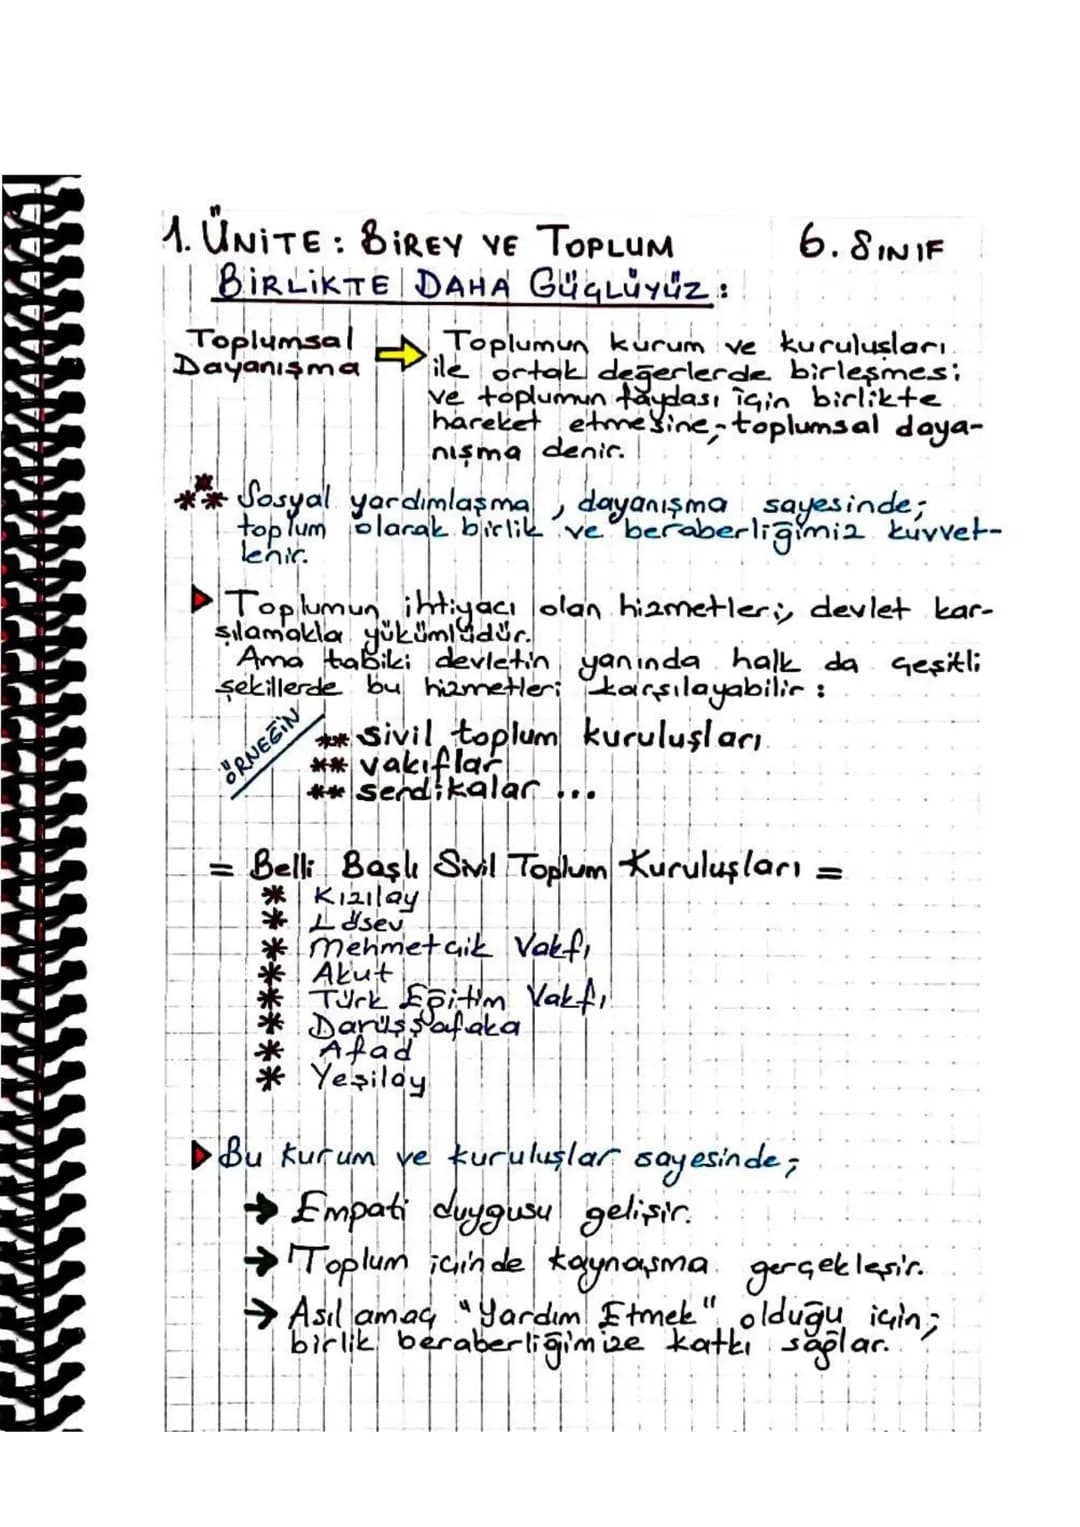 1. ÜNİTE: BİREY VE TOPLUM 6. SINIF
BİRLİKTE DAHA GÜÇLÜYÜZ:
Toplumsal Dayanışma
Toplumun kurum ve kuruluşları
ile ortak değerlerde birleşmesi
ve toplumun faydası için birlikte
hareket etmesine, toplumsal daya-
nışma denir.
*** Sosyal yardımlaşma, dayanışma sayesinde;
toplum olarak birlik ve beraberliğimiz kuvvet-
lenir.
Toplumun ihtiyacı olan hizmetleri, devlet kar-
şılamakla yükümlüdür.
Ama tabiki devletin yanında halk da çeşitli
şekillerde bu hizmetleri karşılayabilir:
ÖRNEĞİN
** sivil toplum kuruluşları
** vakıflar
** sendikalar ...
= Belli Başlı Sivil Toplum Kuruluşları =
* Kızılay
* Lösev
* Mehmetçik Vakfı
* Akut
* Türk Eğitim Vakfı
* Darüşşafaka
* Afad
* Yeşilay
Bu kurum ve kuruluşlar sayesinde;
→ Empati duygusu gelişir.
→ Toplum içinde kaynaşma gerçekleşir.
→ Asıl amaç "Yardım Etmek" olduğu için;
birlik beraberliğimize katkı sağlar.